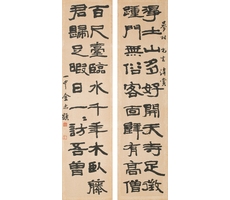 淨土山多好開天寺足徵
踵門無俗客面郭有高僧
百尺臺臨水千年木臥藤
君歸足暇日一一訪吾曾